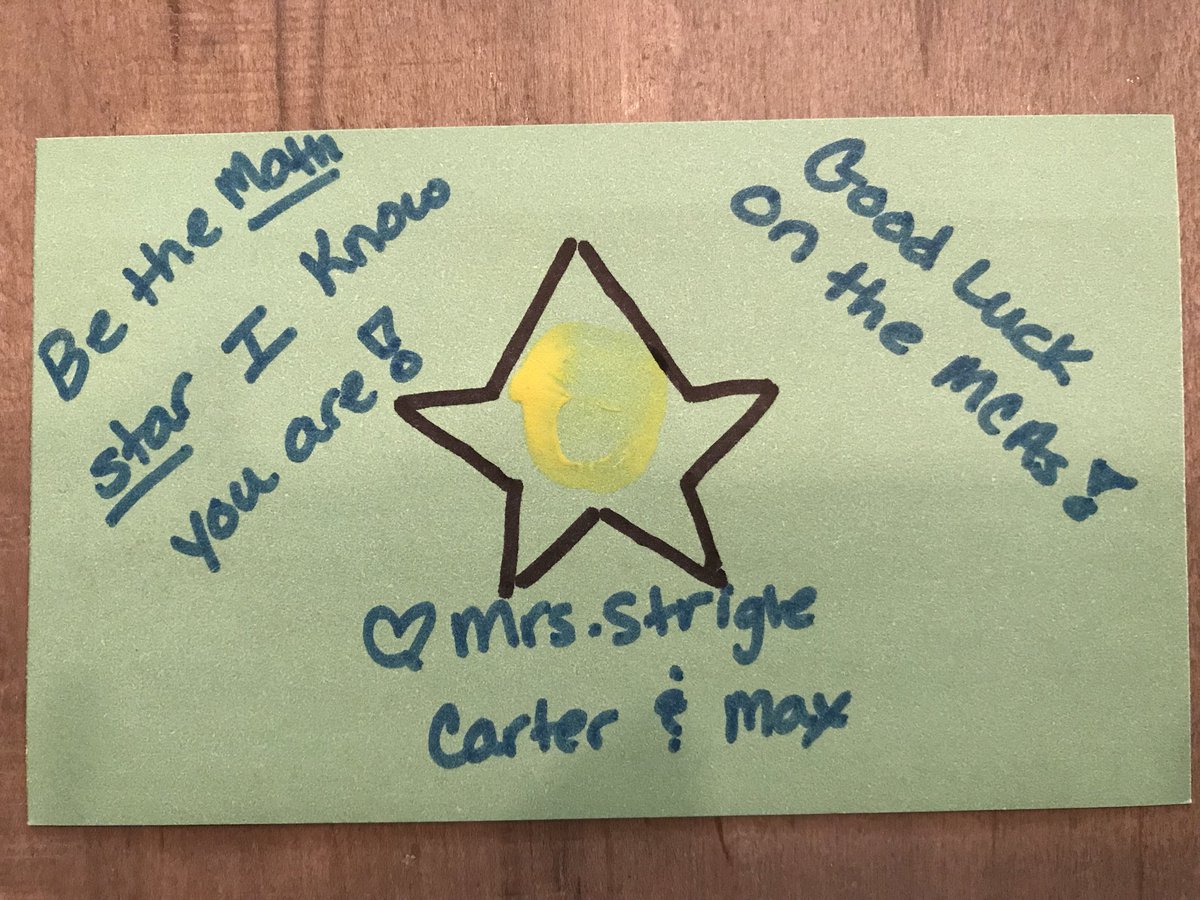 Be the Math
Star I Know
you are!
Good Luck
on the MCAs!
♡ Mrs. Strigle
Carter & Max